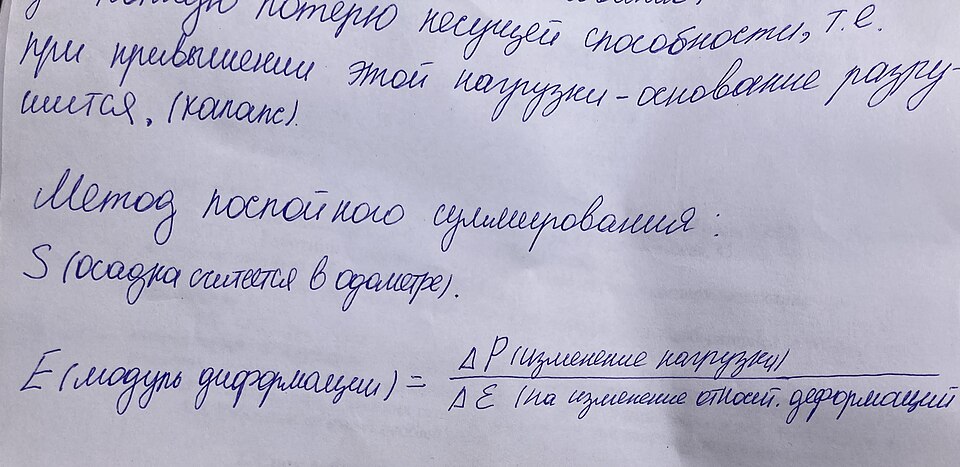 потерю несущей способности, т.е.
при привышении этой нагрузки - основание разру-
шится. (калапс).
Метод послойного суммирования:
S (осадка считется в одометре).
E (модуль диформации) = ΔP (изменение нагрузки)
Δε (на изменение относит. деформаций